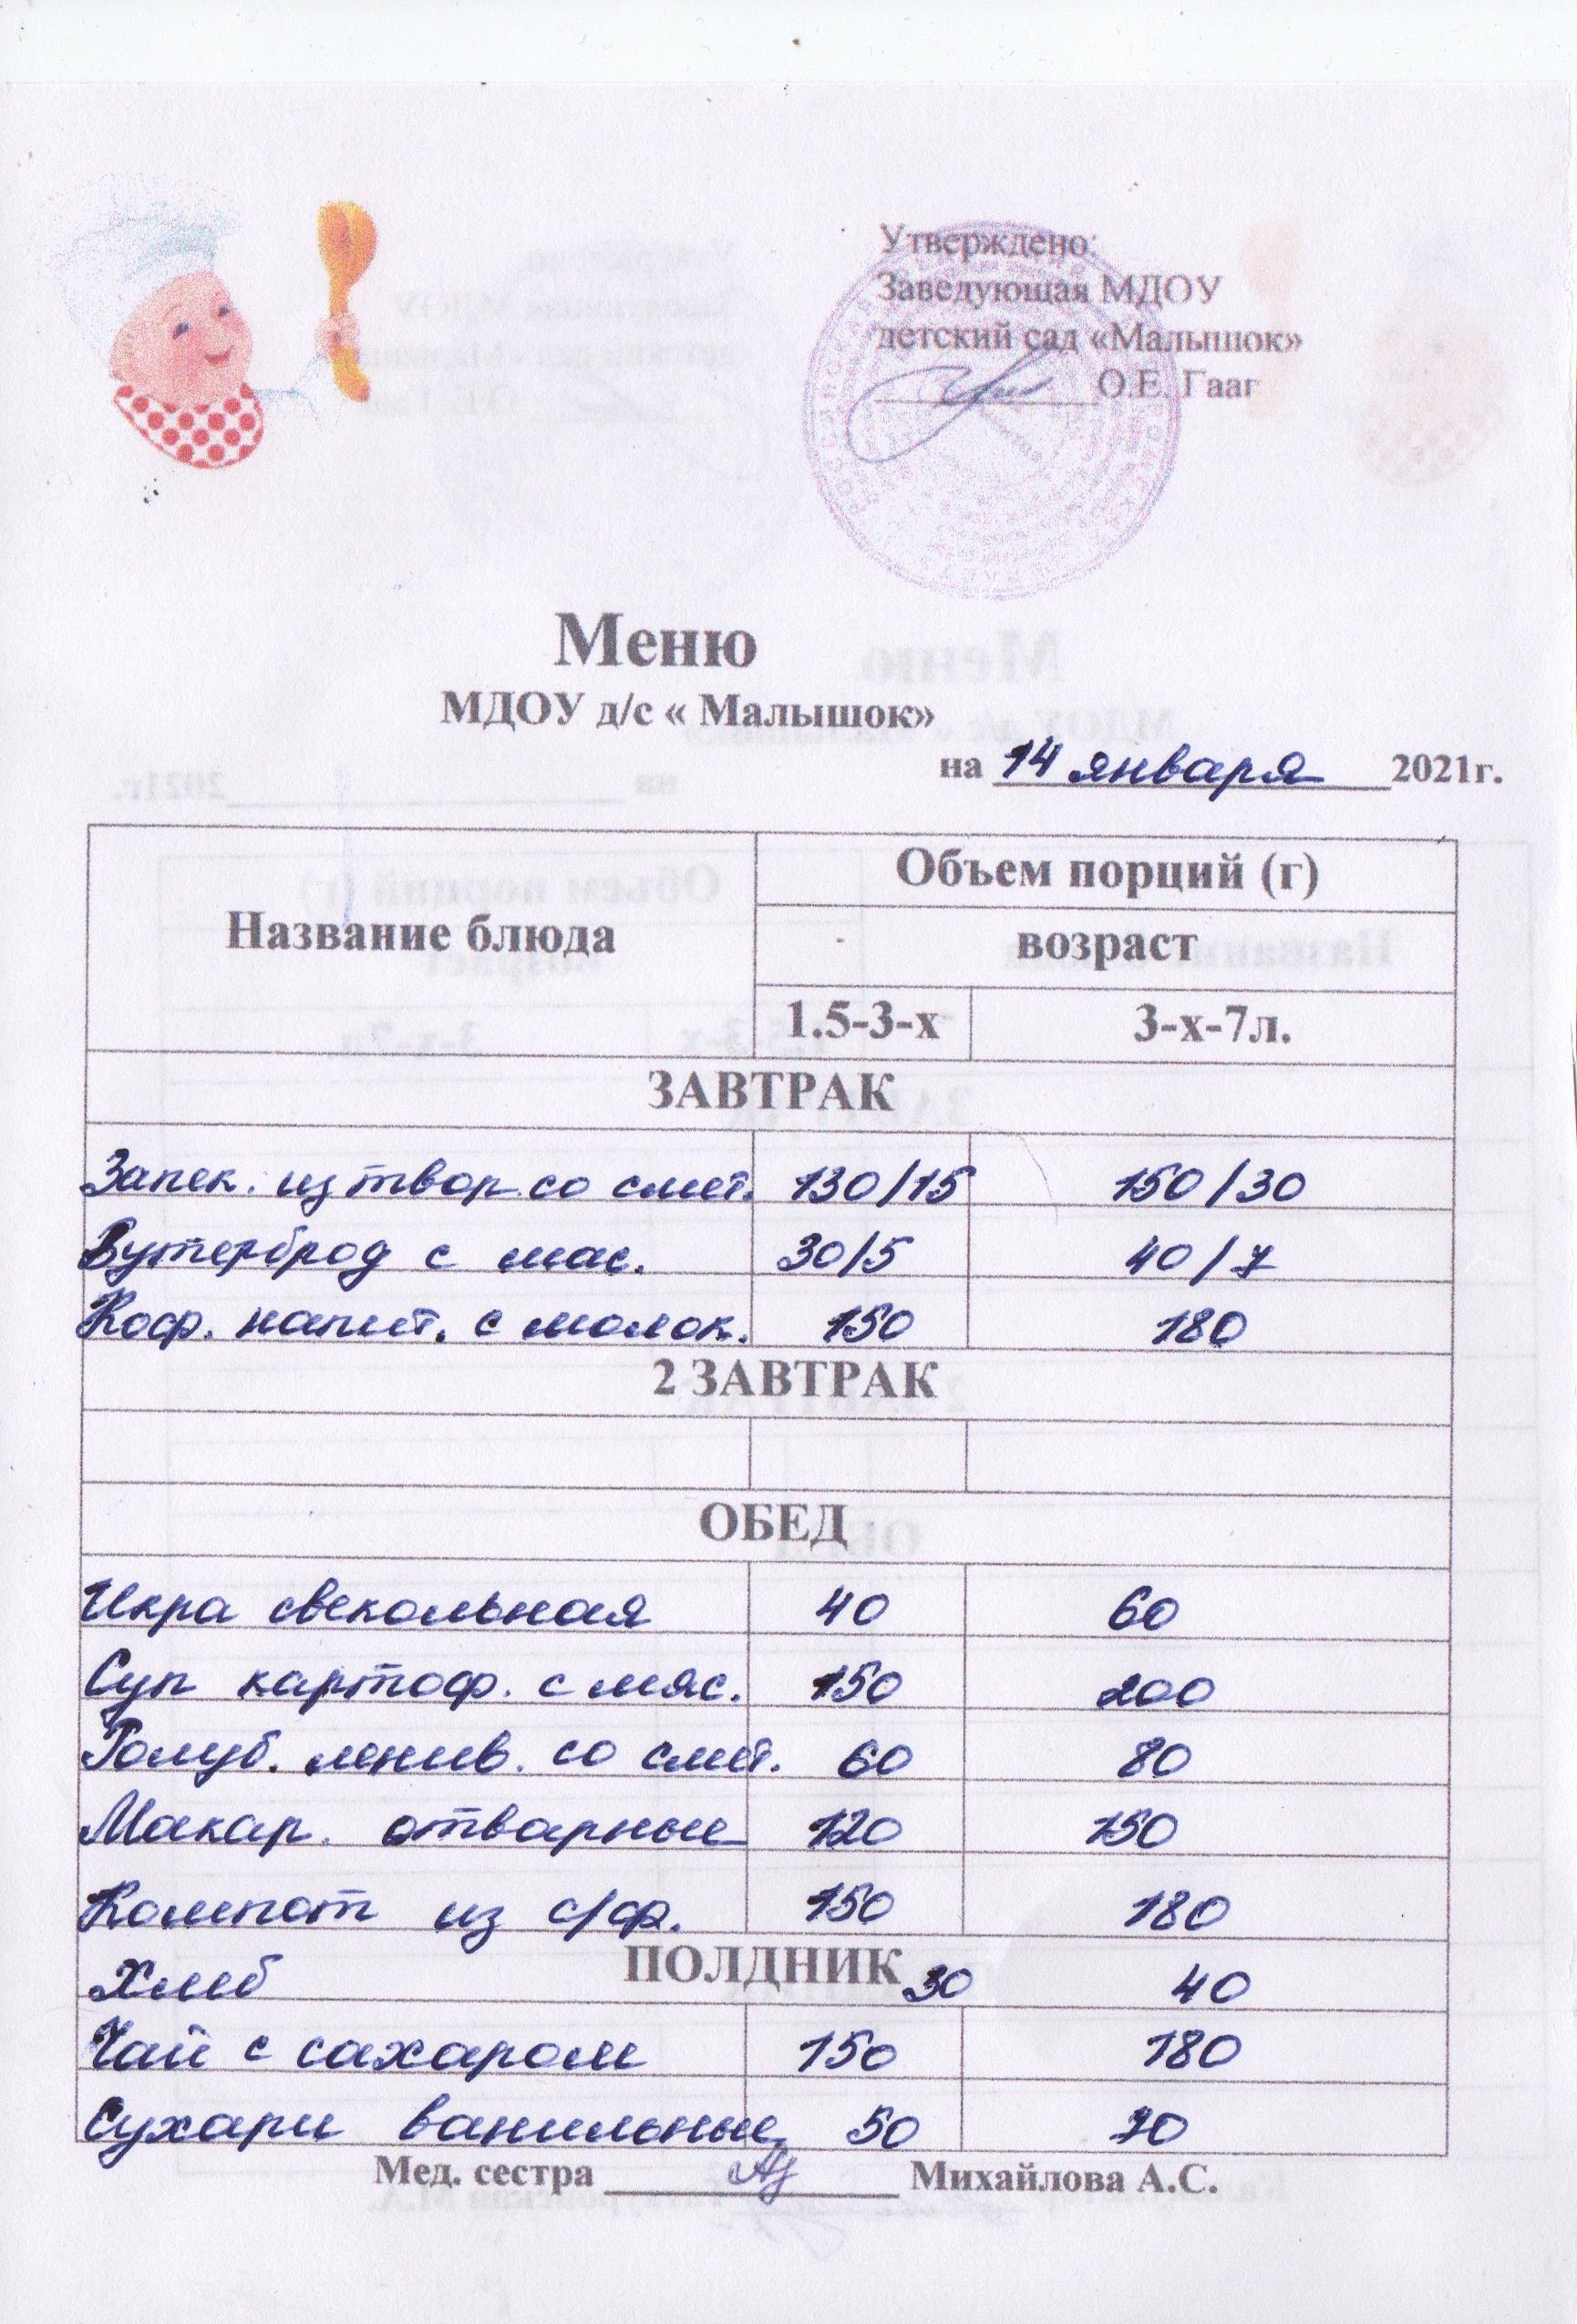 Утверждено:
Заведующая МДОУ
детский сад «Малышок»
О.Е. Гааг
Меню
МДОУ д/с « Малышок»
на 14 января 2021г.
Название блюда
Объем порций (г)
возраст
1.5-3-х 3-х-7л.
ЗАВТРАК
Запек. из твор. со смет. 130/15 150/30
Бутерброд с мас. 30/5 40/7
Коф. напит. с молок. 150 180
2 ЗАВТРАК
ОБЕД
Икра свекольная 40 60
Суп картоф. с мяс. 150 200
Голуб. ленив. со смет. 60 80
Макар. отварные 120 150
Компот из с/ф. 150 180
ПОЛДНИК
Хлеб 30 40
Чай с сахаром 150 180
Сухари ванильные 50 70
Мед. сестра Михайлова А.С.